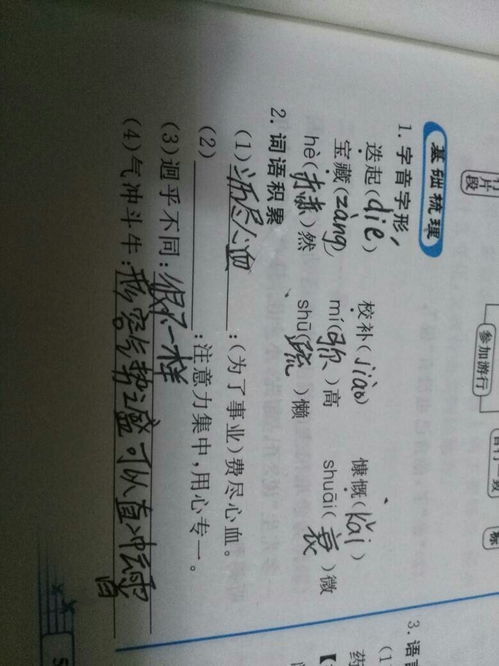 片段
参加游行
标
基础梳理
1. 字音字形
迭起(dié) 校补(jiào) 慷慨(kǎi)
宝藏(zàng) mí(弥)高 shuāi(衰)微
hè(赫)然 shū(疏)懒
2. 词语积累
(1)沥尽心血:(为了事业)费尽心血。
(2)________:注意力集中,用心专一。
(3)迥乎不同:很不一样
(4)气冲斗牛:形容气势之盛可以直冲云霄
3. 语
(1
药